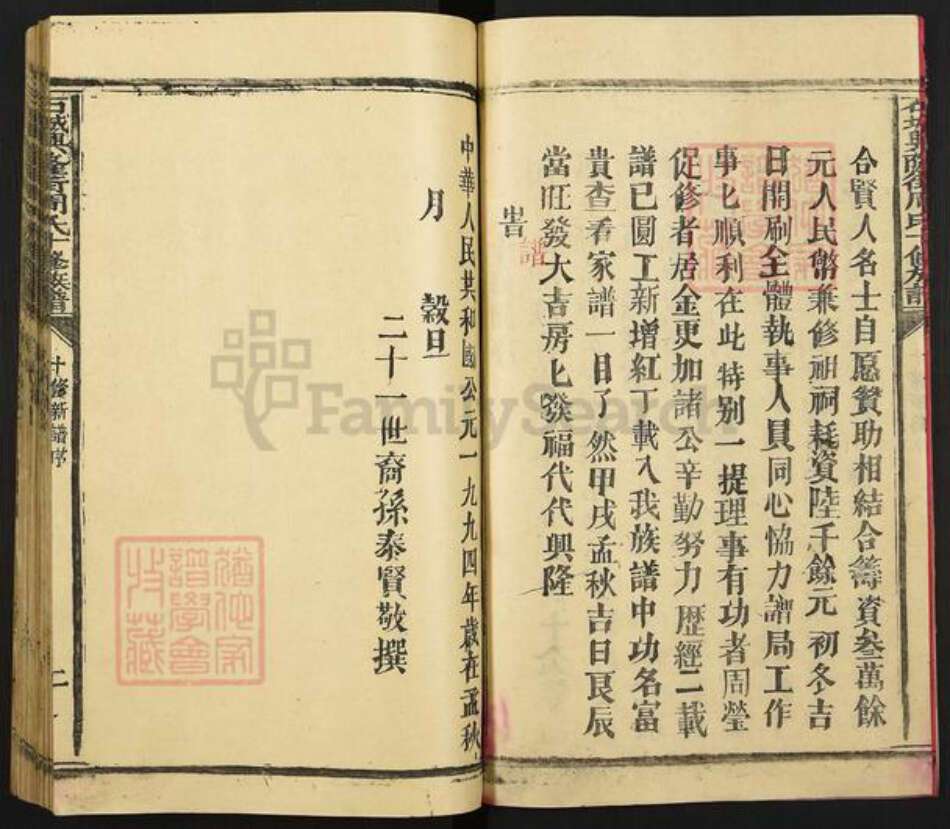 合賢人名士自愿贊助相結合籌資叁萬餘
元人民幣兼修祖祠耗資陸千餘元初冬吉
日開刷全體執事人員同心恊力譜局工作
事匕順利在此特别一提理事有功者周瑩
促修者居金更加諸公辛勤努力歷經二載
譜已圆工新增紅丁載入我族譜中功名富
貴查看家譜一目了然甲戌孟秋吉日良辰
當旺發大吉房匕發福代代興隆
旹
譜
中華人民共和國公元一九九四年歲在孟秋
月 穀旦
二十一世裔孫泰賢敬撰
石城興隆街周氏十修族譜
十修新譜序
二
譜學會
收藏
FamilySearch